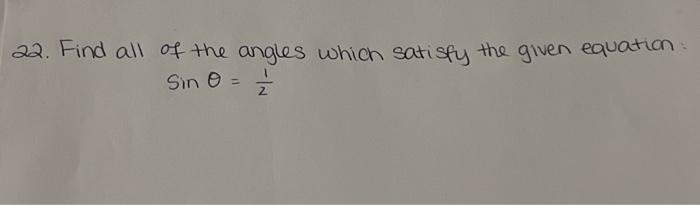 22. Find all of the angles which satisfy the given equation:
Sin θ = 1/2